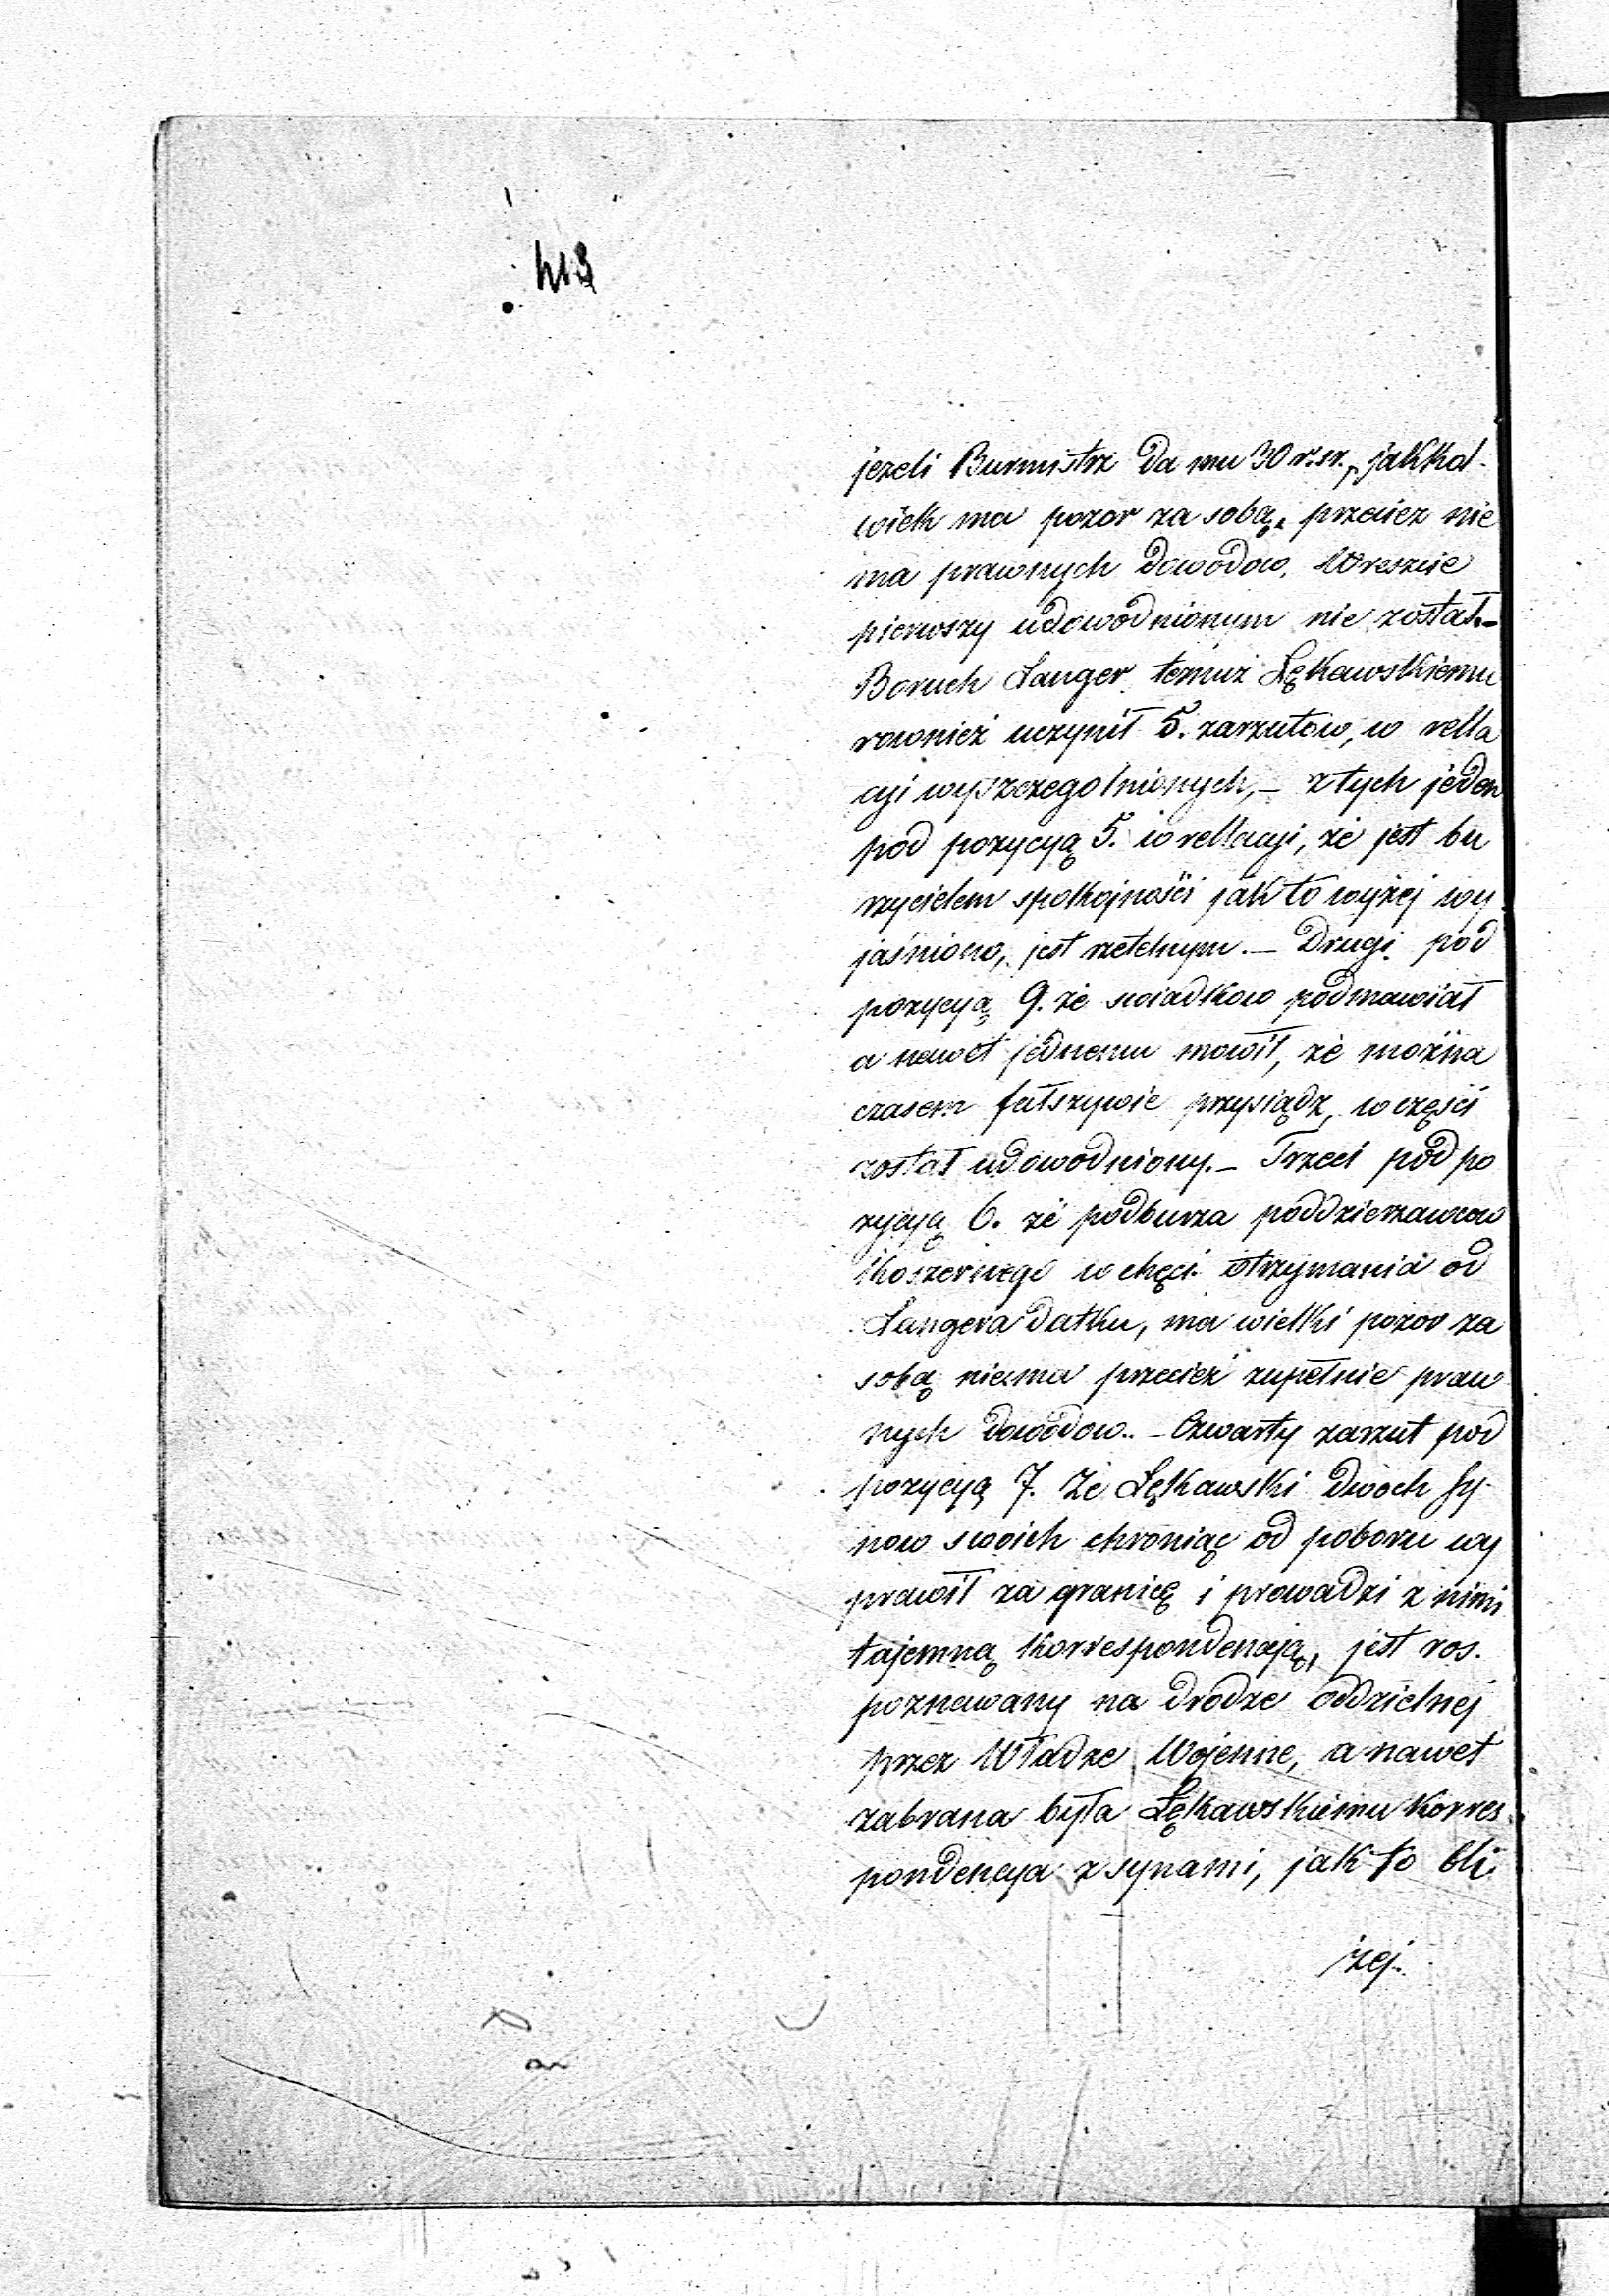 jezeli Burmistrz da mu 30 r. sr., jakkol-
wiek ma pozor za sobą, przeciez nie
ma prawnych dowodow. Wreszcie
pierwszy udowodnionym nie został.—
Boruch Langer temuż Łękawskiemu
rownież uczynił 5. zarzutow, w rella
cyi wyszczegolnionych,— z tych jeden
pod pozycyą 5. w rellacyi, że jest bu
rzycielem spokojności jak to wyżej wy
jaśniono, jest rzetelnym.— Drugi pod
pozycyą 9. że swiadkow podmawiał
a nawet jednemu mowił, że można
czasem fałszywie przysiądz, w częsci
został udowodniony.— Trzeci pod po
zycyą 6. że podburza poddzierzawcow
koszernego w chęci otrzymania od
Langera datku, ma wielki pozor za
sobą niema przecież zupełnie praw
nych dowodow.. — Czwarty zarzut pod
pozycyą 7. Że Łękawski dwoch Sy-
now swoich chroniąc od poboru wy
prawił za granicę i prowadzi z nimi
tajemną korrespondencją, jest ros.
poznawany na drodze oddzielnej
przez Władze Wojenne, a nawet
zabrana była Łękawskiemu Korres
pondencya z synami, jak to bli
żej.